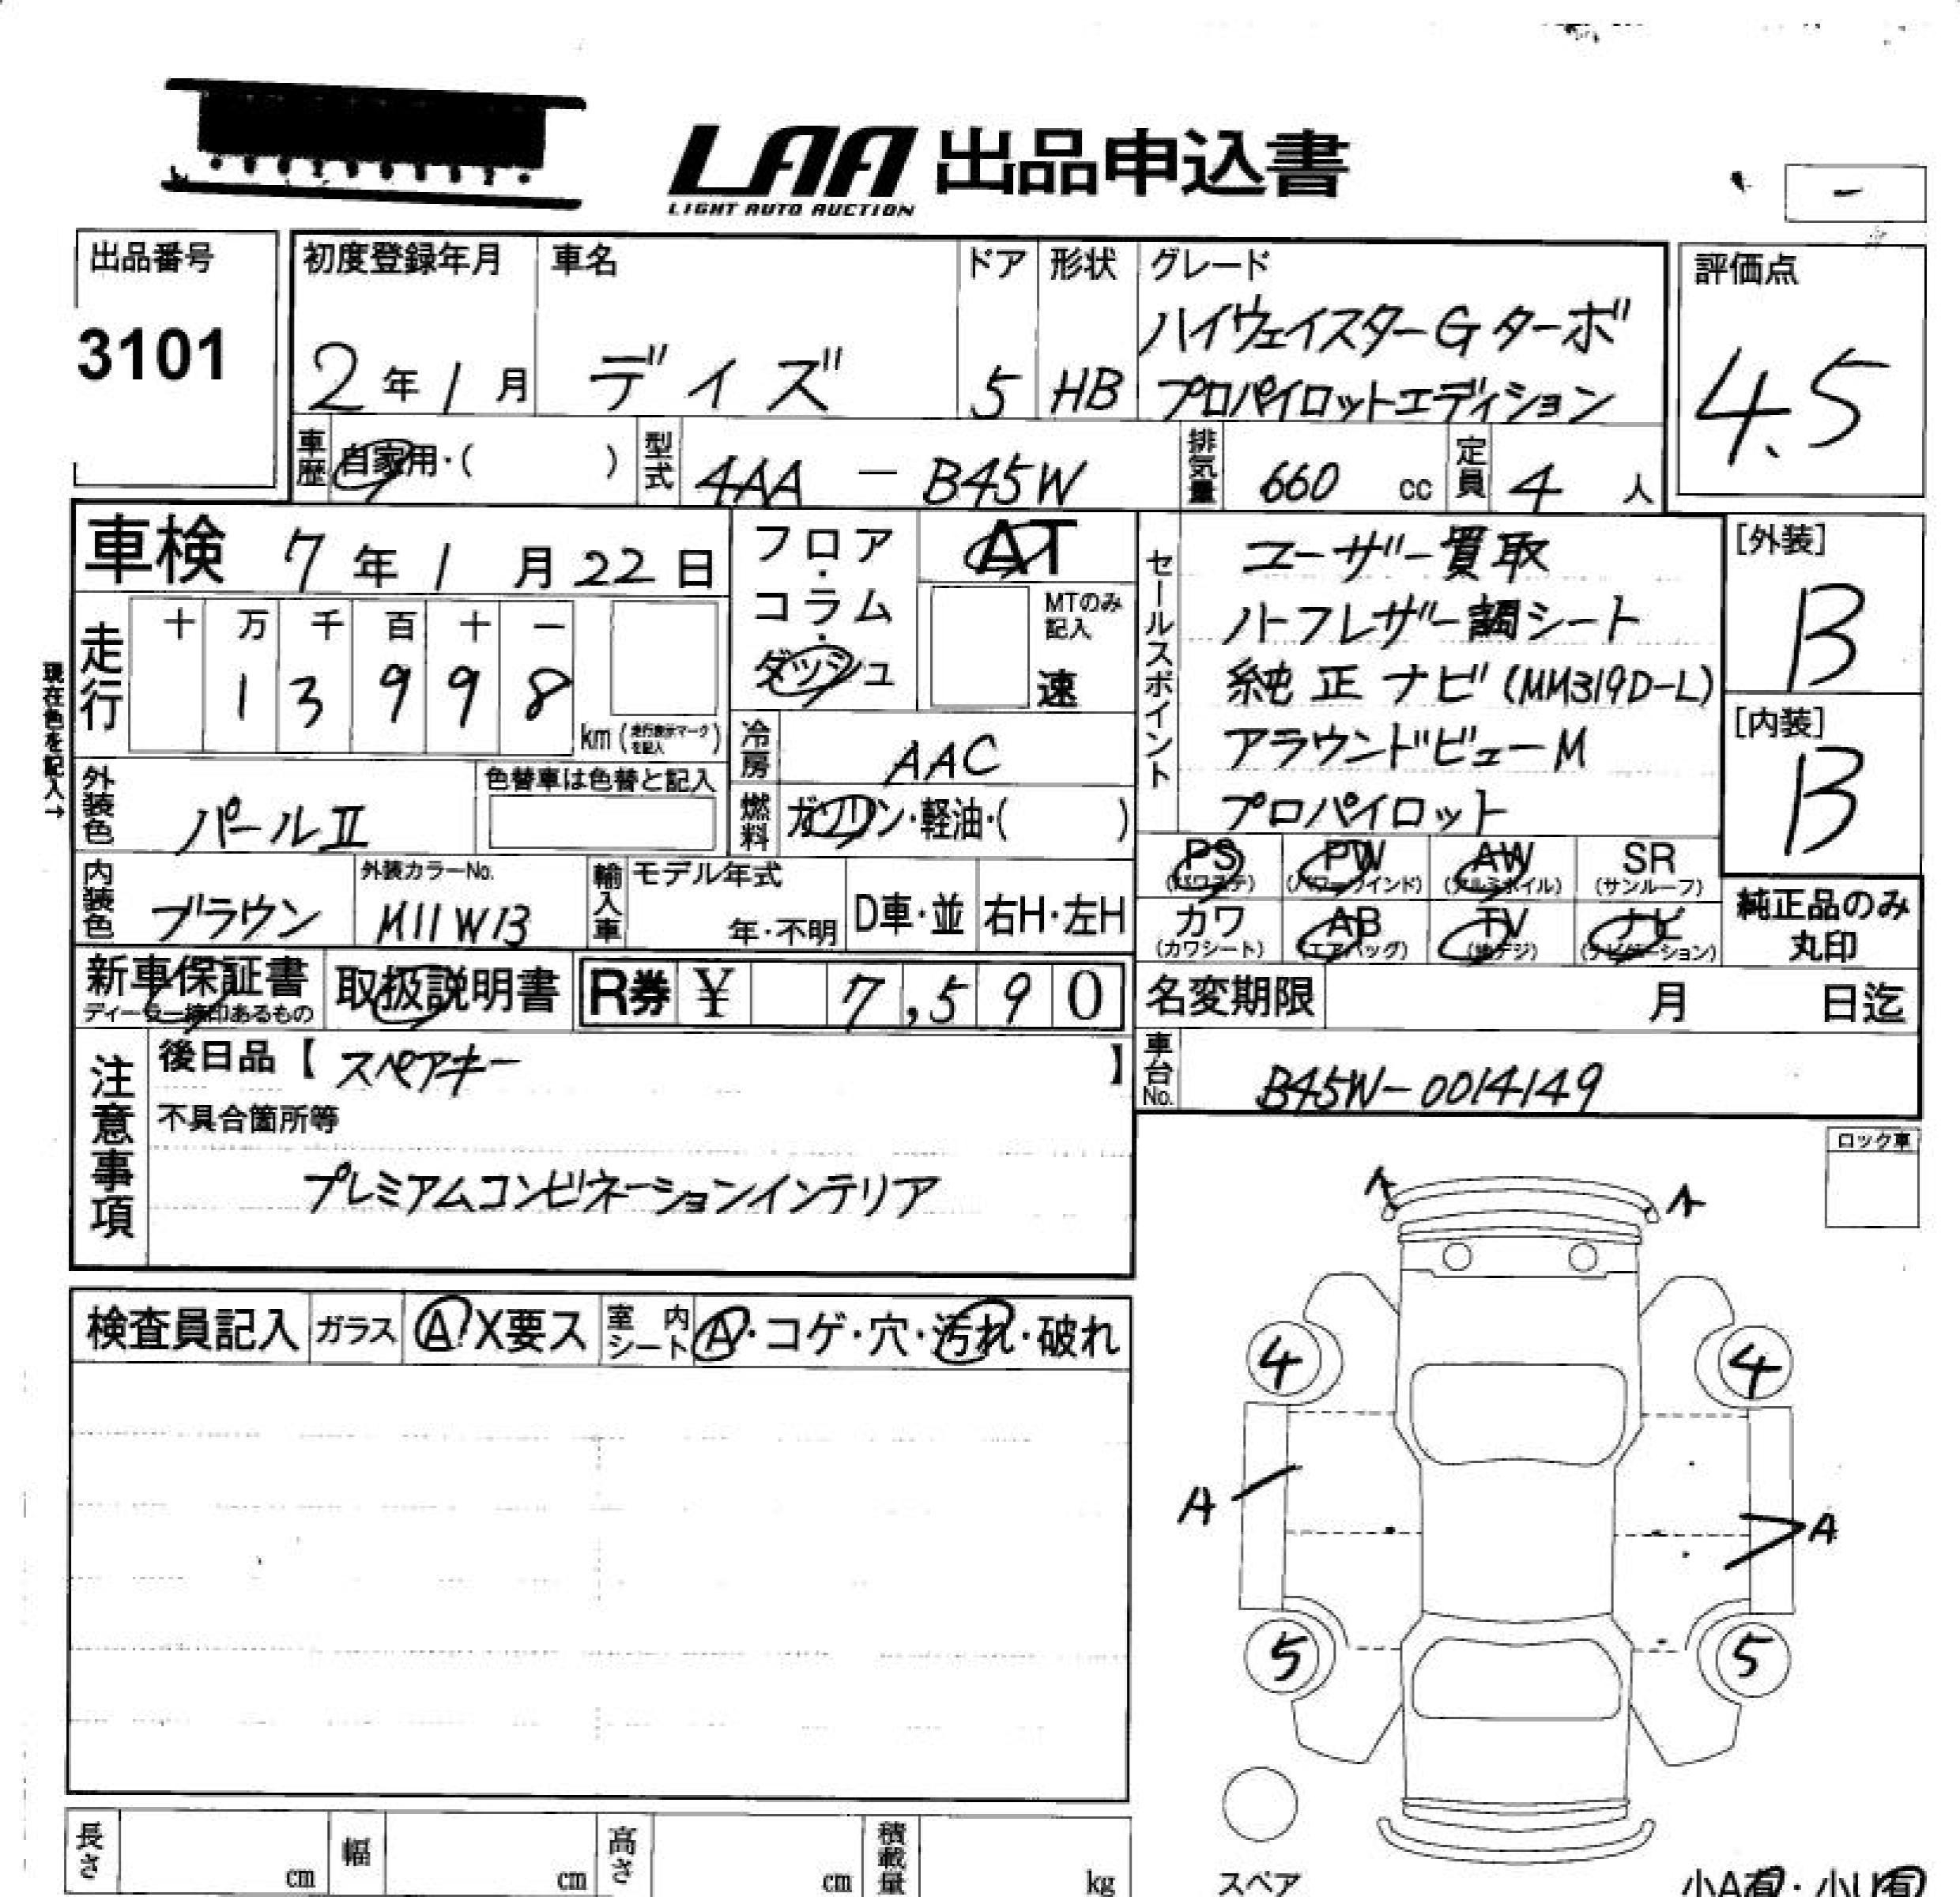 LAA 出品申込書
LIGHT AUTO AUCTION
-
出品番号
3101
初度登録年月
2年1月
車名
デイズ
ドア
5
形状
HB
グレード
ハイウェイスターGターボ
プロパイロットエディション
評価点
4.5
車歴
自家用・( )
型式
4AA - B45W
排気量
660 cc
定員
4 人
車検 7年1月22日
走行
十 万 千 百 十 一
1 3 9 9 8
km (走行表示マークを記入)
現在色を記入→
フロア・コラム・ダッシュ
AT
MTのみ記入
速
冷房
AAC
燃料
ガソリン・軽油・( )
外装色
パールⅡ
色替車は色替と記入
内装色
ブラウン
外装カラーNo.
M11W13
輸入車
モデル年式
年・不明
D車・並
右H・左H
セールスポイント
ユーザー買取
ハーフレザー調シート
純正ナビ(MM319D-L)
アラウンドビューM
プロパイロット
[外装]
B
[内装]
B
PS
(パワステ)
PW
(パワーウインド)
AW
(アルミホイル)
SR
(サンルーフ)
カワ
(カワシート)
AB
(エアバッグ)
TV
(地デジ)
ナビ
(ナビゲーション)
純正品のみ
丸印
新車保証書
ディーラー捺印あるもの
取扱説明書
R券 ¥ 7,590
名変期限 月 日迄
車台No.
B45W-0014149
注意事項
後日品【スペアキー】
不具合箇所等
プレミアムコンビネーションインテリア
ロック車
検査員記入
ガラス
A X要ス
室内シート
A・コゲ・穴・汚れ・破れ
A A
4 4
A A
5 5
スペア
小A有・小U有
長さ cm
幅 cm
高さ cm
積載量 kg